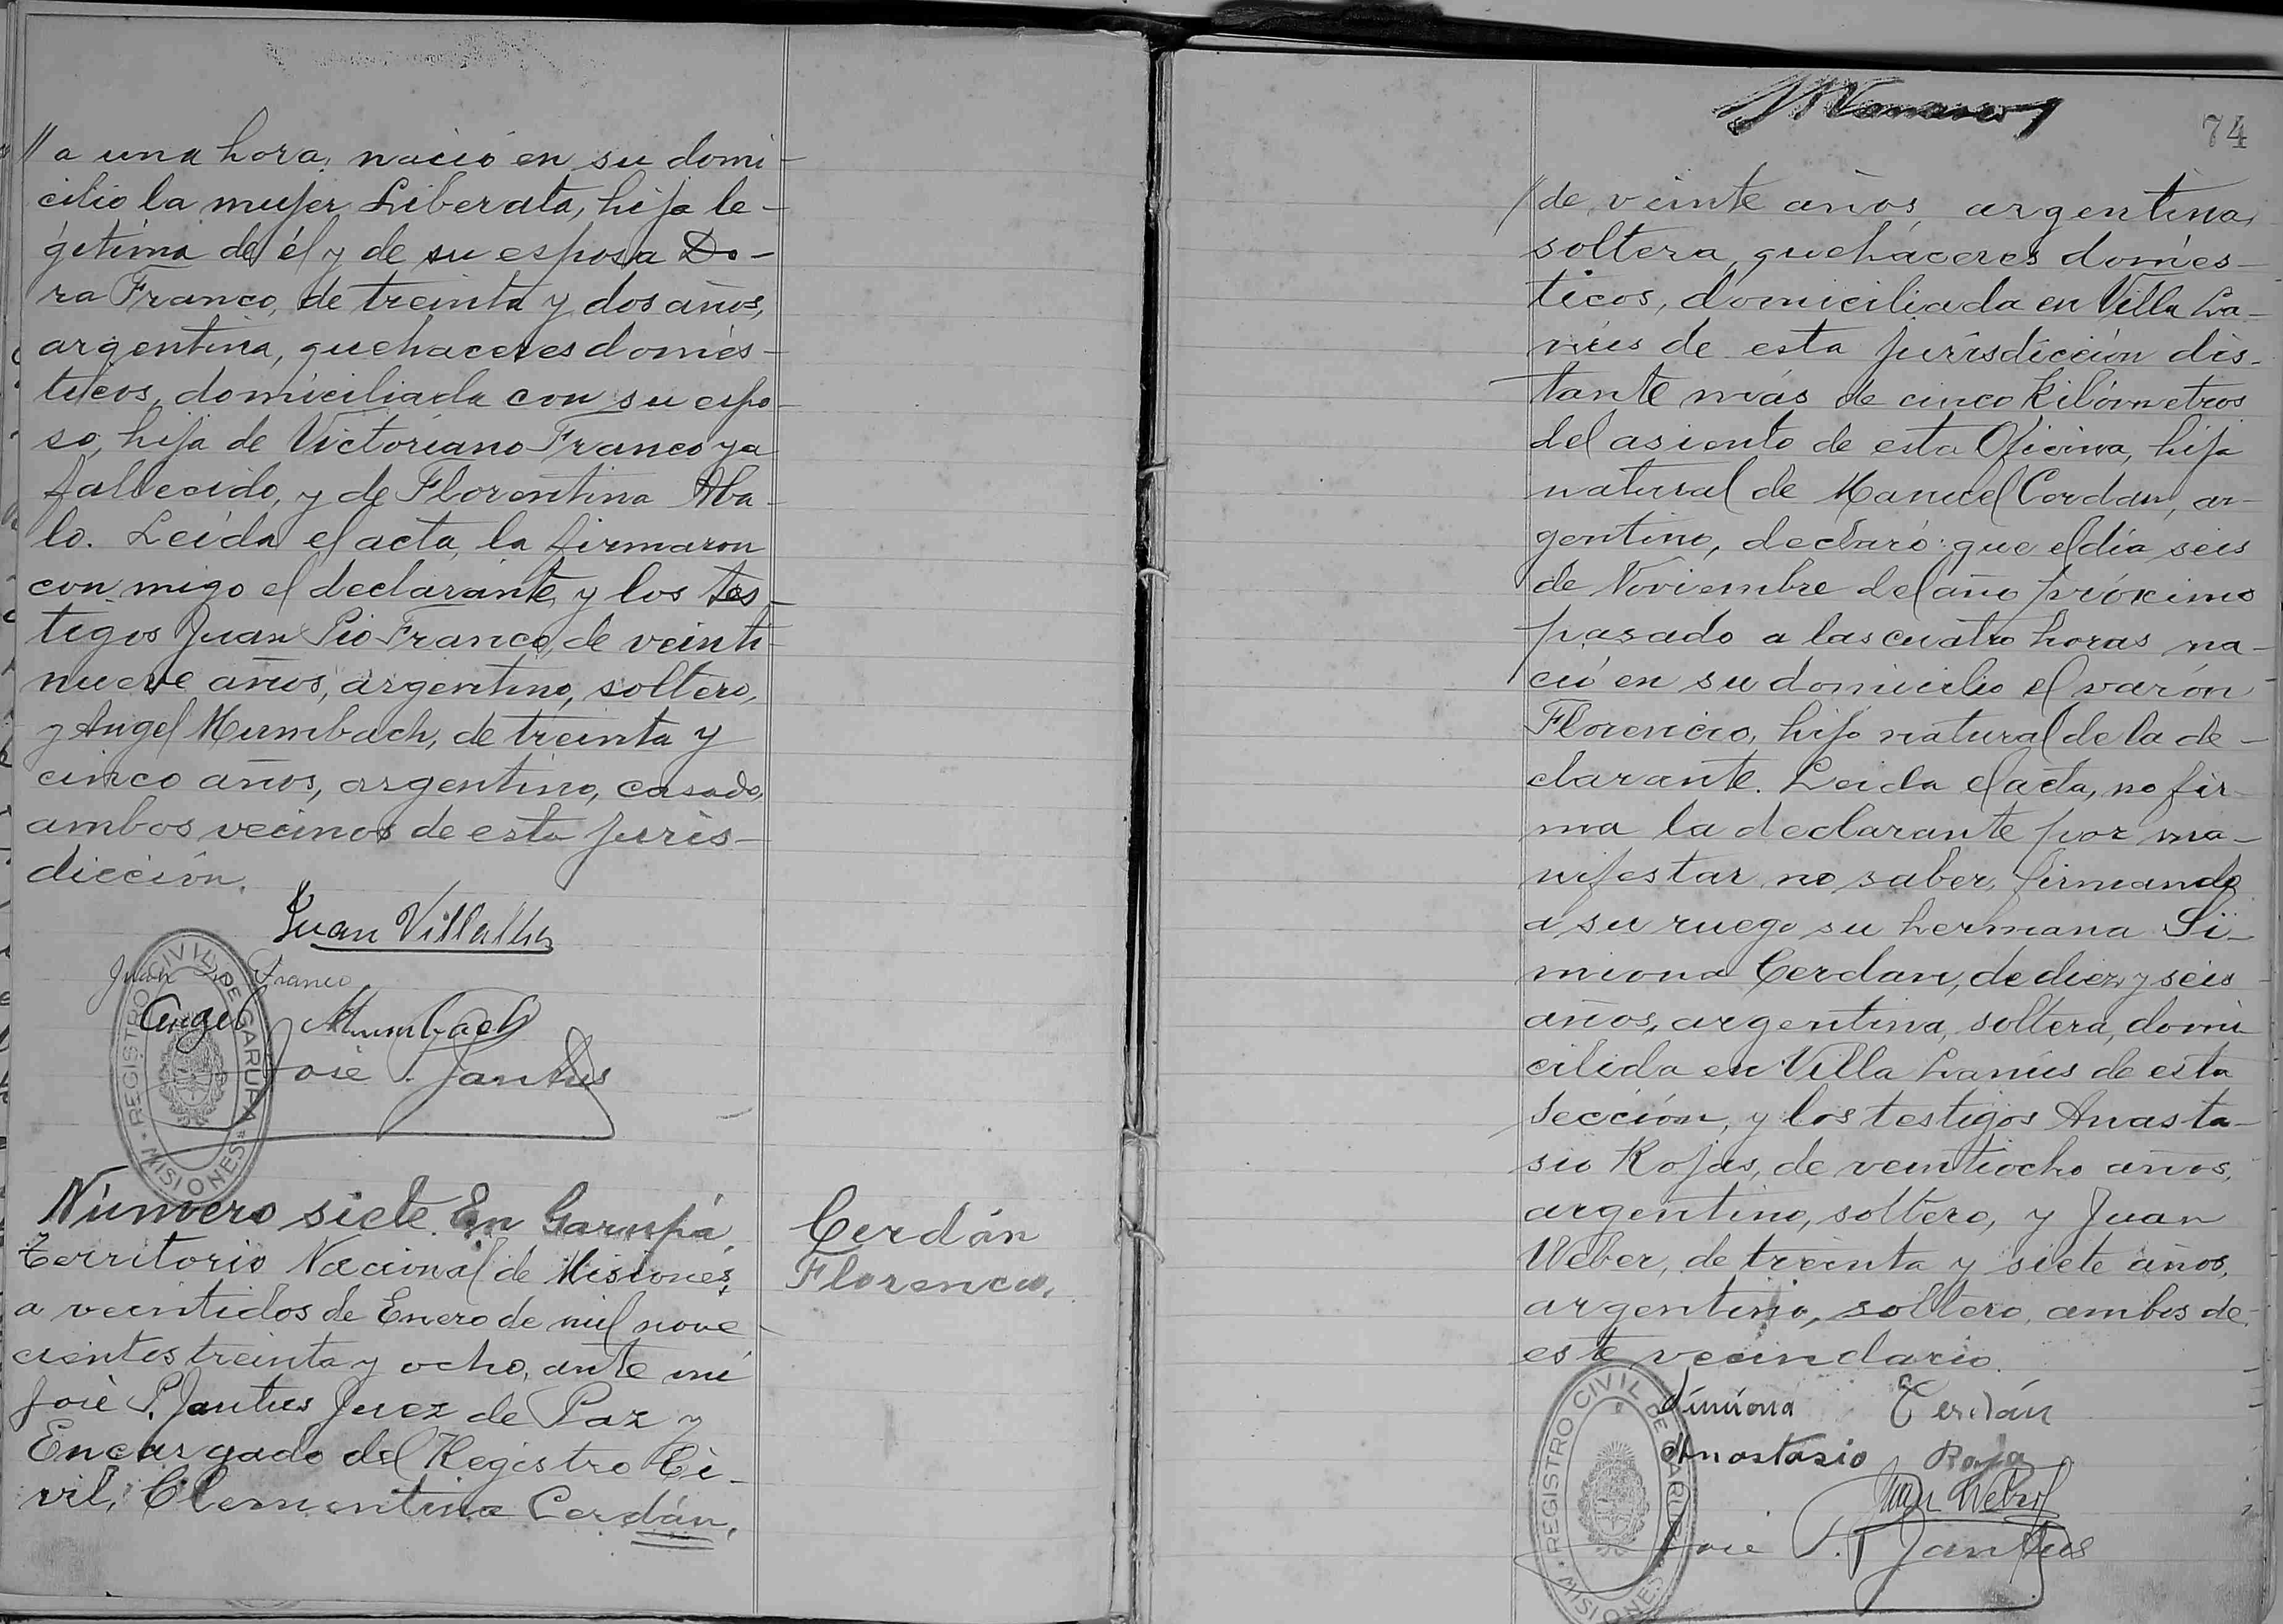 // a una hora, nació en su domi-
cilio la mujer Liberata, hija le-
gítima de él y de su esposa Do-
ra Franco, de treinta y dos años,
argentina, quehaceres domés-
ticos, domiciliada con su espo-
so, hija de Victoriano Franco ya
fallecido, y de Florentina Aba-
lo. Leída el acta, la firmaron
con migo el declarante y los tes-
tigos Juan Pio Franco, de veinti-
nueve años, argentino, soltero,
y Angel Mumbach, de treinta y
cinco años, argentino, casado,
ambos vecinos de esta juris-
dicción.
Juan Villalba
Juan Pio Franco
Angel Mumbach
José P. Jantus
REGISTRO CIVIL DE GARUPA
MISIONES
Número siete. En Garupá,
Territorio Nacional de Misiones,
a veintidos de Enero de mil nove
cientos treinta y ocho, ante mí
José P. Jantus Juez de Paz y
Encargado del Registro Ci-
vil, Clementina Cerdán,
Cerdán
Florencio.
74
// de veinte años, argentina,
soltera, quehaceres domés-
ticos, domiciliada en Villa La-
nús de esta jurisdicción dis-
tante más de cinco kilómetros
del asiento de esta Oficina, hija
natural de Manuel Cerdan, ar-
gentino, declaró: que el día seis
de Noviembre del año próximo
pasado a las cuatro horas na-
ció en su domicilio el varón
Florencio, hijo natural de la de-
clarante. Leida el acta, no fir-
ma la declarante por ma-
nifestar no saber, firmando
a su ruego su hermana Si-
miona Cerdan, de diez y seis
años, argentina, soltera, domi
cilida en Villa Lanús de esta
sección, y los testigos Anasta-
sio Rojas, de veintiocho años,
argentino, soltero, y Juan
Weber, de treinta y siete años,
argentino, soltero, ambos de
este vecindario.
Simiona Cerdán
Anastasio Roja
Juan Weber
José P. Jantus
REGISTRO CIVIL DE GARUPA
MISIONES